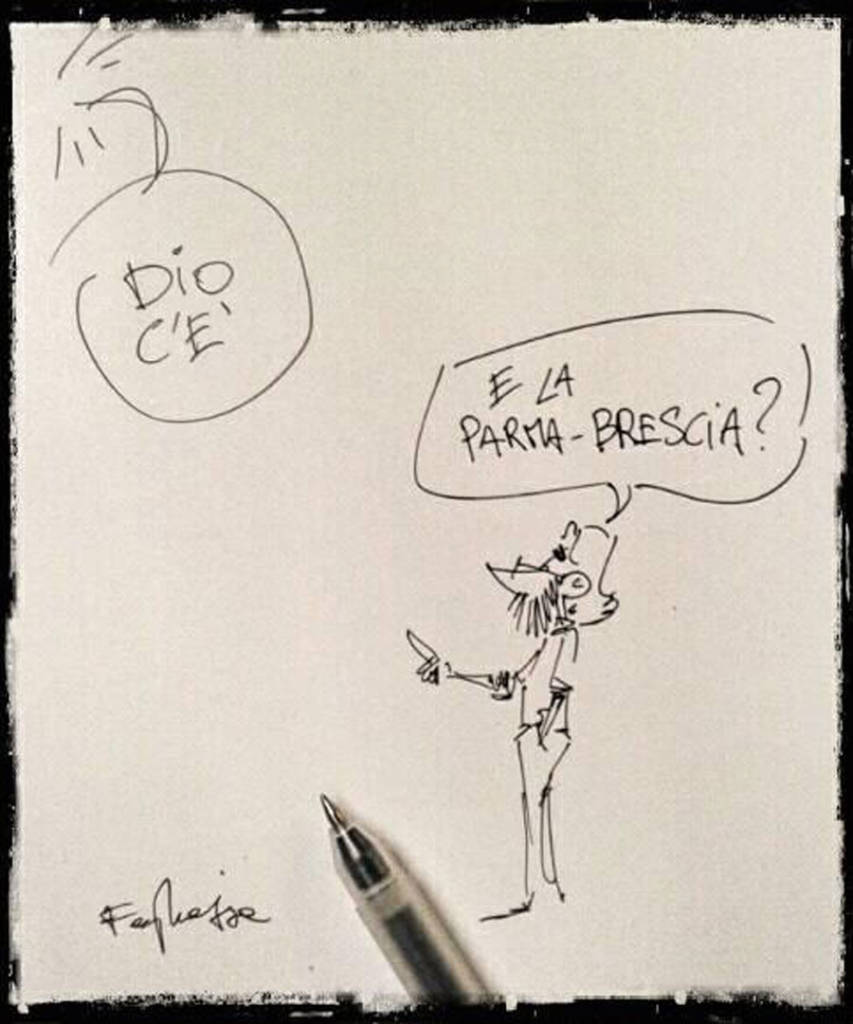 DIO
C'E'
E LA
PARMA-BRESCIA?